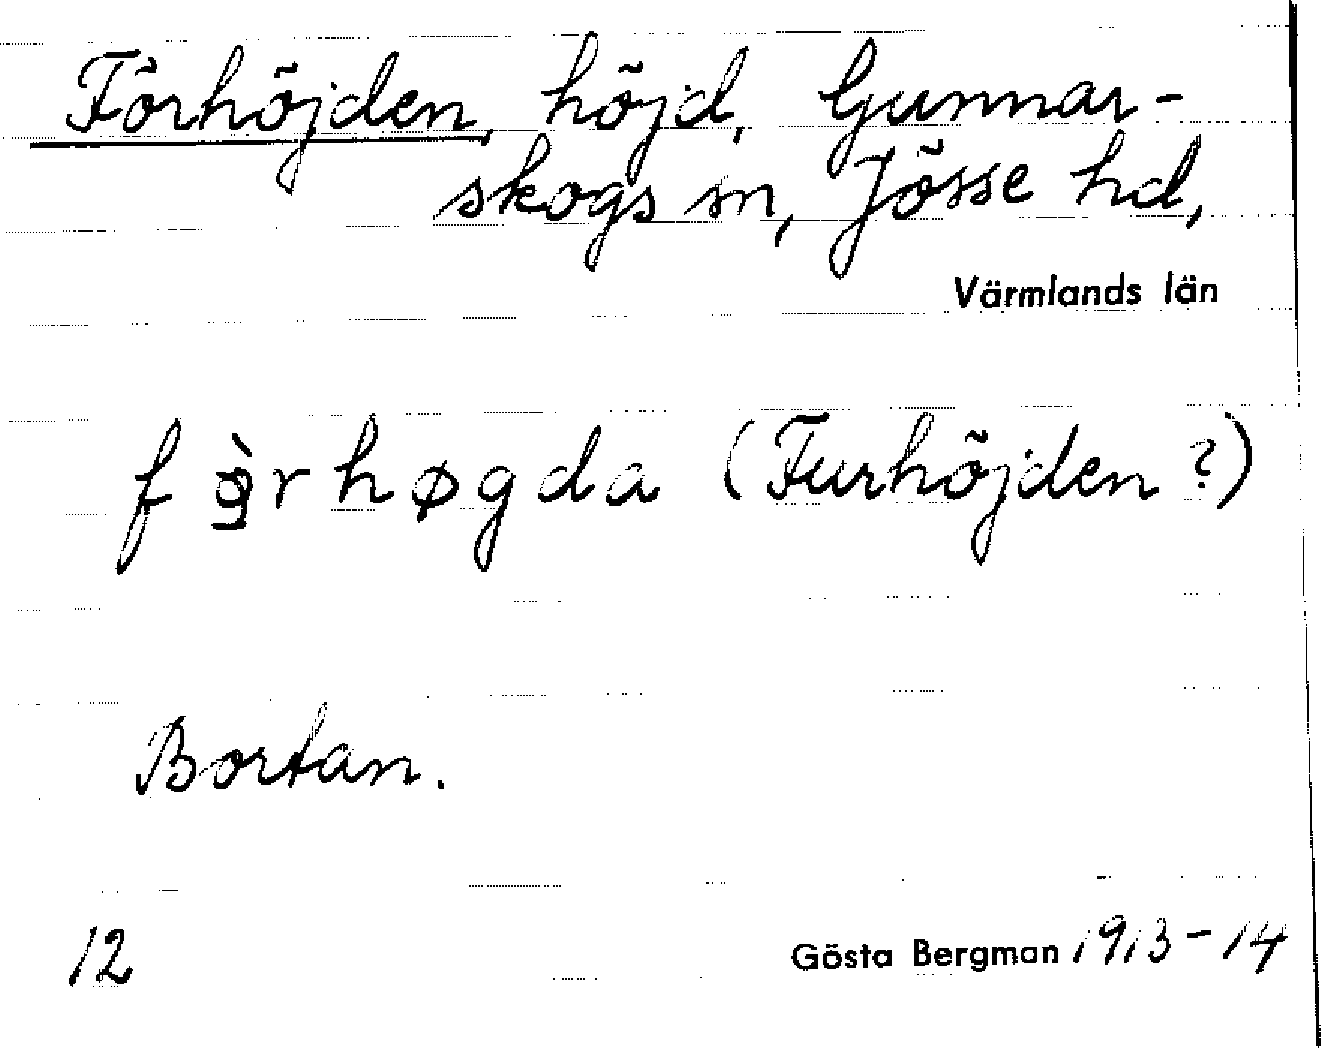 Förhöjden, höjd, Gunnar-
skogs sn, Jösse hd,
Värmlands län
f ə̀r høgda (Furhöjden?)
Bortan.
12
Gösta Bergman 1913-14